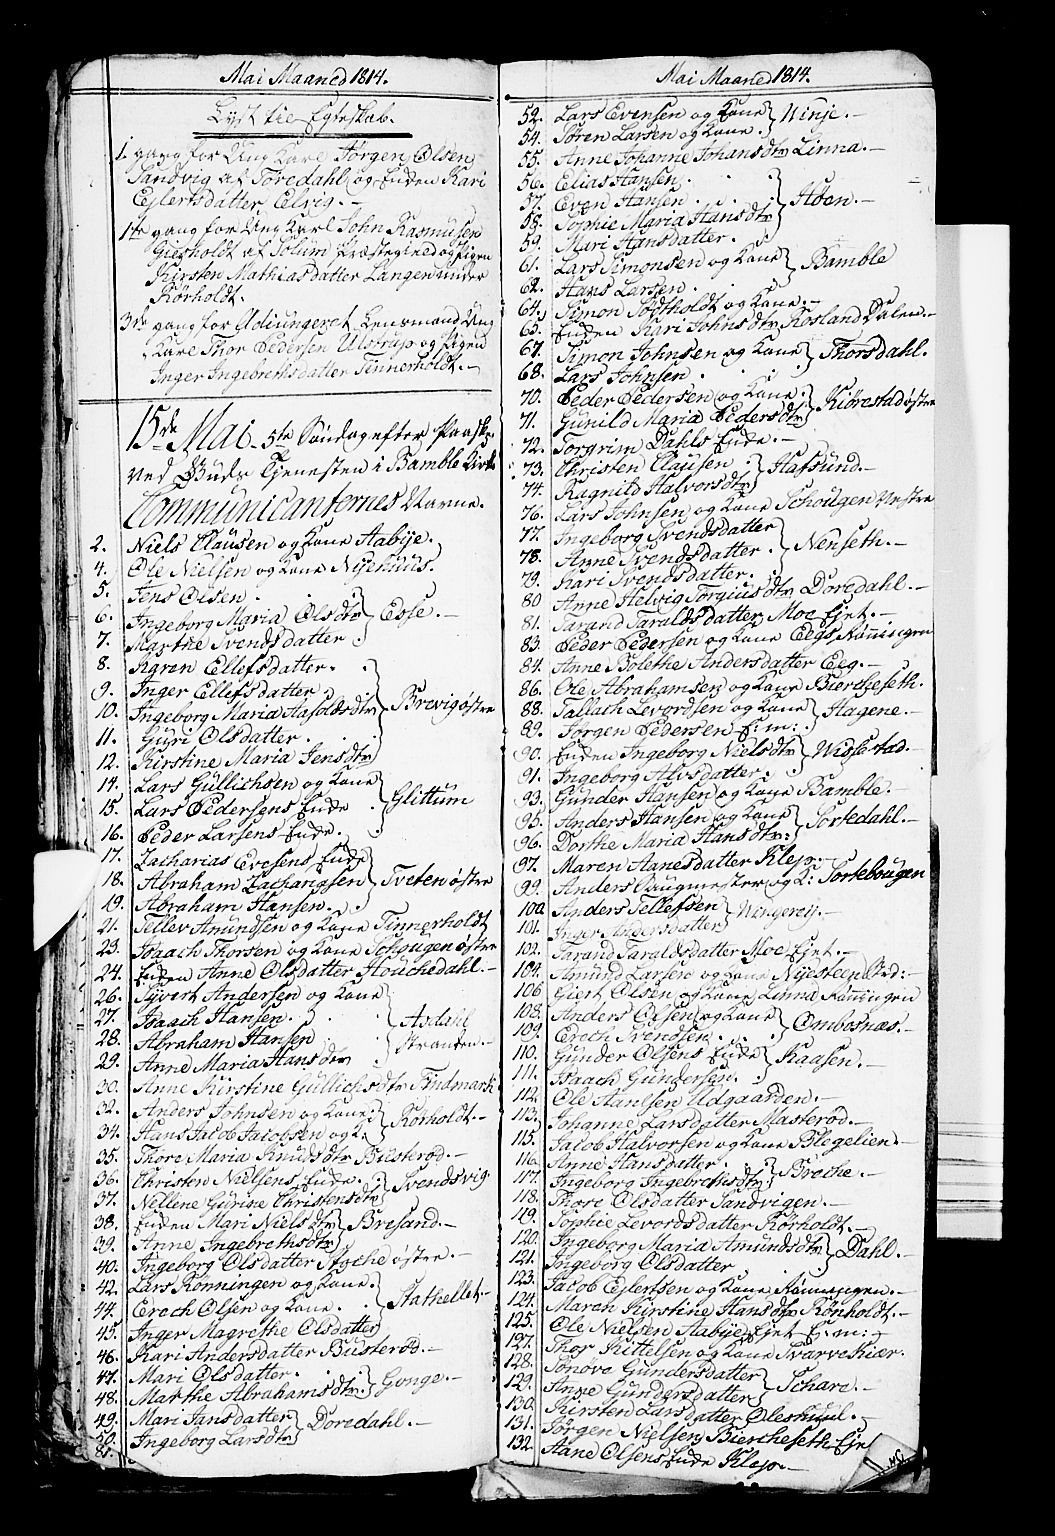 Mai Maaned 1814.
Lyst til Egteskab.
1. gang for Ung Karl Jørgen Olsen
Sandvig af Toredahl og Enken Kari
Ejlertsdatter Eelvig. -
1te gang for Ung Karl John Rasmusen
Giesholdt af Solum Præstegield og Pigen
Kirsten Mathiasdatter Langen under
Rørholdt.
3de gang for Adiungeret Lensmand Ung
Karl Thor Pedersen Ulstrup og Pigen
Inger Ingebrethsdatter Tinnerholdt. -
15de Mai 5te Søndag efter Paaske
ved Guds Tienesten i Bamble Kirke
Communicanternes Navne.
2. Niels Clausen og Kone Aabije.
4. Ole Nielsen og Kone Nijehuus.
5. Jens Olsen .
6. Ingeborg Maria Olsdtr Esse. -
7. Marthe Svendsdatter
8. Karen Ellefsdatter.
9. Inger Ellefsdatter .
10. Ingeborg Maria Aasoldsdtr Brevig østre
11. Guri Olsdatter .
12. Kirstine Maria Jensdtr
14. Lars Gullichsen og Kone
15. Lars Pedersens Enke Glittum
16. Peder Larsens Enke.
17. Zacharias Evesens Enke
18. Abraham Zachariasen Tveten østre
19. Abraham Hansen.
21. Tellev Amundsen og Kone Tinnerholdt
23. Isaach Thorsen og Kone Schougen østre
24. Enken Anne Olsdatter Stouchedahl. -
26. Sijvert Andersen og Kone
27. Isaach Hansen. Asdahl
28. Abraham Hansen Stranden. -
29. Anne Maria Hansdtr
30. Anne Kirstine Gullichsdtr Findmark
32. Anders Johnsen og Kone Rørholdt. -
34. Hans Jacob Jacobsen og K.
35. Thore Maria Knudsdtr Biesterød. -
36. Christen Nielsens Enke. Svendsvig.
37. Nellene Gurine Christensdtr
38. Enken Mari Nielsdtr Bresand. -
39. Anne Ingebrethsdtr
40. Ingeborg Olsdatter Stoche østre. -
42. Lars Rønningen og Kone.
44. Erech Olsen og Kone. Stathellet. -
45. Inger Magrethe Olsdatter
46. Kari Andersdatter Busterød. -
47. Mari Olsdatter. Gonge. -
48. Marthe Abrahamsdtr.
49. Mari Jansdatter Doredahl. -
50. Ingeborg Larsdtr
Mai Maaned 1814.
52. Lars Evensen og Kone Winje. -
54. Søren Larsen og Kone.
55. Anne Johanne Johansdtr Linna. -
56. Elias Hansen .
57. Even Hansen . . Aaen. -
58. Sophie Maria Hansdtr
59. Mari Hansdatter.
61. Lars Simonsen og Kone Bamble
62. Hans Larsen .
64. Simon Søetholdt og Kone. -
65. Enken Kari Johnsdtr Rosland Dalen. -
67. Simon Johnsen og Kone Thorsdahl.
68. Lars Johnsen .
70. Peder Pedersen og Kone. Kiørestad østre
71. Gunild Maria Pedersdtr
72. Torgrim Dahls Enke. -
73. Christen Clausen Hafsund. -
74. Ragnild Halvorsdtr
76. Lars Johnsen og Kone Schougen Vestre
77. Ingeborg Svendsdatter
78. Anne Svendsdatter . Nenseth. -
79. Kari Svendsdatter.
80 Anne Helvig Torgiusdtr Doredahl. -
81. Tarand Taraldsdatter Moe Ejet. -
83. Peder Pedersen og Kone Eegs Rønningen
84. Anne Bolethe Andersdatter Eeg. -
86. Ole Abrahamsen og Kone Biercheseth.
88. Tallach Levordsen og Kone Hagene. -
89. Jørgen Pedersen E:m:
90. Enken Ingeborg Nielsdtr Wissestad. -
91. Ingeborg Alvsdatter.
93. Gunder Hansen og Kone Bamble. -
95. Anders Hansen og Kone Tortedahl. -
96. Dorthe Maria Hansdtr:
97. Maren Hanesdatter Klep. -
99. Anders Laugmester og K: Tortebougen
100. Anders Tellefsen Wingereij. -
101. Inger Andersdatter
102. Tarand Taraldsdatter Moe Ejet. -
104. Amund Larsen og Kone Nijesteen
106 Giert Olsen og Kone Linna Rønningen
108. Anders Olsen og Kone Ombosnæs. -
109. Erech Svendsen .
110. Gunder Olsens Enke Kaasen. -
111. Isaach Gundersen.
112. Ole Hanesen Udgaarden. -
113. Johanne Larsdatter Masterød. -
115. Jacob Halvorsen og Kone Blegelien. -
116. Anne Hansdatter. Breche. -
117. Ingeborg Ingebrethsdtr
118. Thore Olsdatter Sandvigen. -
119. Sophie Levordsdatter Rørholdt. -
120. Ingeborg Maria Amundsdtr Dahl. -
121. Ingeborg Olsdatter
123. Jacob Ejlertsen og Kone Rønningen. -
124. Maren Kirstine Hansdtr Rønholdt. -
125. Ole Nielsen Aabije Ejet E:m: -
127. Thor Kittelsen og Kone Svarvekiær.
128. Tonøve Gundersdatter
129. Anne Gundersdatter Schare. -
130. Kirsten Larsdatter Oleskuul. -
131. Jørgen Nielsen Biercheseth Eje
132. Hane Olsens Enke Klep. -